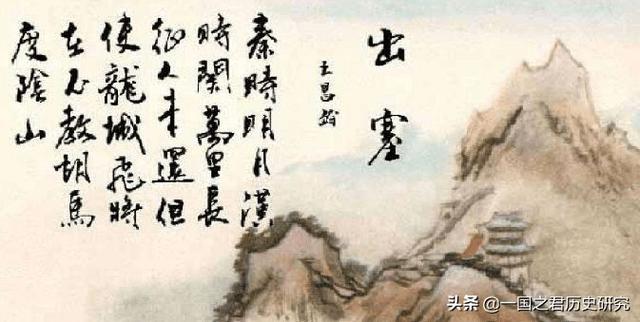 出塞
王昌龄
秦時明月漢
時關萬里長
征人未還但
使龍城飛將
在不教胡馬
度陰山
头条 @一国之君历史研究